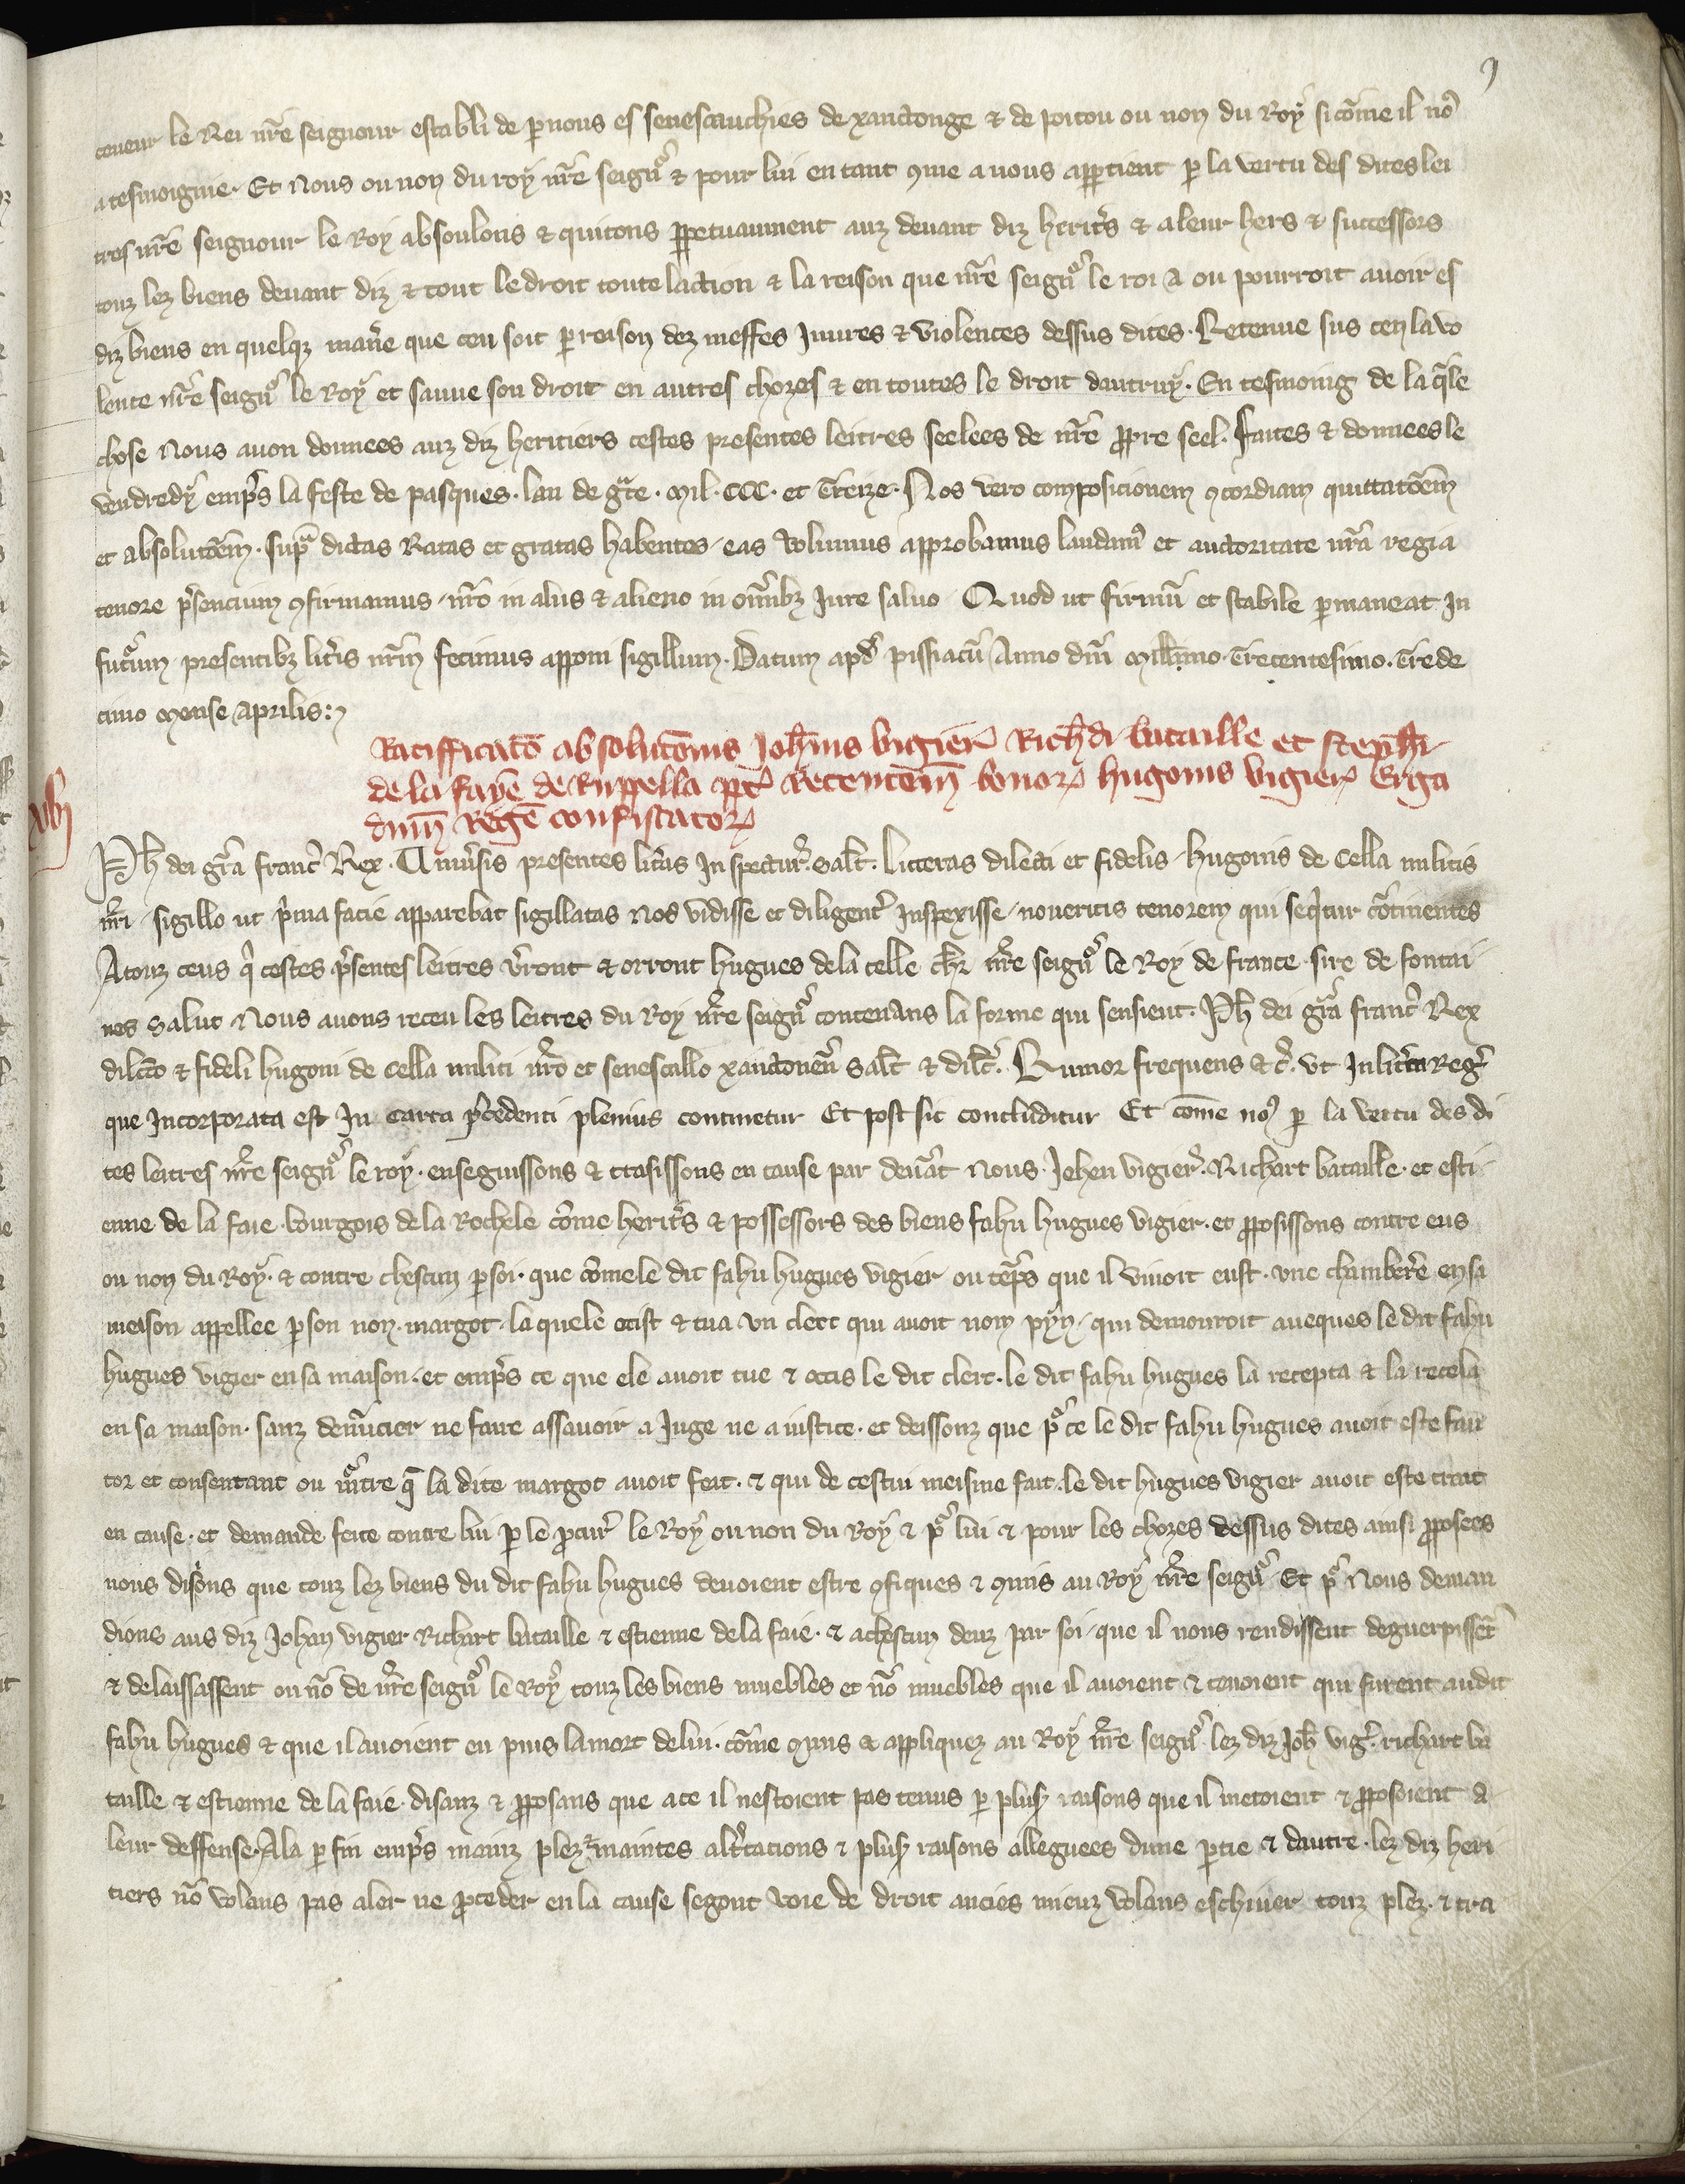 ceveur le Rei nr̃e seignour establi de p nous es senescauchies de xanctonge & de poitou ou non du Roy sicõme il no9
a tesmoignie. Et Nous ou non du roy nr̃e seignor & pour lui en tant 9me a nous appartient p la vertu des dites lei
tres nr̃e seignour le Roy absoulons & quitons ppetuaument auz devant diz heritrs & a leur hers & successors
touz lez biens devant diz & tout le droit toute laction & la reison que nr̃e seignor le roi a ou pourroit avoir es
diz biens en quelqz manre que ceu soit p reison dez meffes Iniures & violences dessus dites. Retenue sus ceu la vo
lente nr̃e seignor le Roy et sauve son droit en autres chozes & en toutes le droit dautruy. En tesmoing de la qle
chose Nous avon donnees auz diz heritiers cestes presentes leitres seelees de nr̃e ppre seel. faites & donnees le
vendredy emprs la feste de pasques. lan de grace. Mil. CCC. et Treize. Nos vero composicionem 9cordiam quittatoẽm
et absolutoẽm. supra dictas Ratas et gratas habentes, eas volumus approbamus laudam9 et auctoritate nr̃a regia
tenore presencium 9firmamus, nr̃o in aliis & alieno in omĩbz Iure salvo. Quod ut firmũ et stabile pmaneat In
futurum presentibz litris nr̃m fecimus apponi sigillum. Datum apd pissiacũ Anno dñi millimo. Trecentesimo. Trede
cimo mense Aprilis:
Ratifficato absolutoĩs Joh̃is vigier Rich̃di bataille et steph̃i
de la faye de Ruppella ppt Retentoẽm bonor hugonis vigier Erga
dñm Regẽ confiscator
xvi
Ph̃ dei grã franc̃ Rex. Univrsis presentes litras Inspectur̃. Salt̃. Litteras dilecti et fidelis hugonis de Cella militis
nr̃i sigillo ut prima facie apparebat sigillatas nos vidisse et diligentr inspexisse, noveritis tenorem qui seqitur cõtinentes
A touz ceus qi cestes presentes leitres vrront & orront hugues de la celle chr̃ nr̃e seignor le Roy de france sire de fontai
nes Salut Nous avons receu les leitres du Roy nr̃e seignor contenans la forme qui sensient. Ph̃ dei grã franc̃ Rex
dilc̃o & fideli hugoni de Cella militi nr̃o et senescallo xanctoneñ Salt̃ & dilc̃. Rumor frequens & c̃. ut In litera Reg̃
que Incorporata est In carta precedenti plenius continetur Et post sic concluditur Et cõme no9 p la vertu des di
tes leitres nr̃e seignor le roy. enseguissons & traisissons en cause par devãt Nous. Jehen vigier. Richart bataille. et esti
enne de la faie. bourgois de la Rochele cõme heritrs & possessors des biens fahu hugues vigier. et pposissons contre eus
ou non du Roy. & contre chescun p soi. que cõme le dit fahu hugues vigier ou tẽps que il vivoit eust. une chamberre en sa
meison appellee p son non. margot. la quele ocist & tua un clerc qui avoit nom pyn, qui demouroit aveques le dit fahu
hugues vigier en sa maison. et emprs ce que ele avoit tue & occis le dit clerc. le dit fahu hugues la recepta & la recela
en sa maison. sanz denũcier ne faire assavoir a Juge ne a iustice. et deissonz que por ce le dit fahu hugues avoit este fau
tor et consentant ou murtre q̃ la dite margot avoit feit. & qui de cestui meisme fait. le dit hugues vigier avoit este trait
en cause. et demande feite contre lui p le pcur̃ le Roy ou non du Roy & por lui & pour les chozes dessus dites ainsi pposees
nous disons que touz lez biens du dit fahu hugues devoient estre 9fiques & 9mis au Roy nr̃e seignor Et por Nous deman
dions aus diz Johan vigier Richart bataille & estienne de la faie. & a chescun deuz par soi, que il nous rendissent deguerpissẽt
& delaissassent ou nõ de nr̃e seignor le Roy touz les biens muebles et nõ muebles que il avoient & tenoient qui furent audit
fahu hugues & que il avoient eu puis la mort de lui. cõme 9mis & appliquez au Roy nr̃e seignor. lez diz Joh̃ vigr̃. richart ba
taille & estienne de la faie. disanz & pposans que a ce il nestoient pas tenus p plus9 raisons que il metoient & pposoient a
leur deffense. A la p fin emprs mainz plez & maintes altrcacions & plus9 raisons alleguees dune ptie & dautre. lez diz heri
tiers nõ volans pas aler ne pceder en la cause segont voie de droit ancies mieuz volans eschiver touz plez. & tra